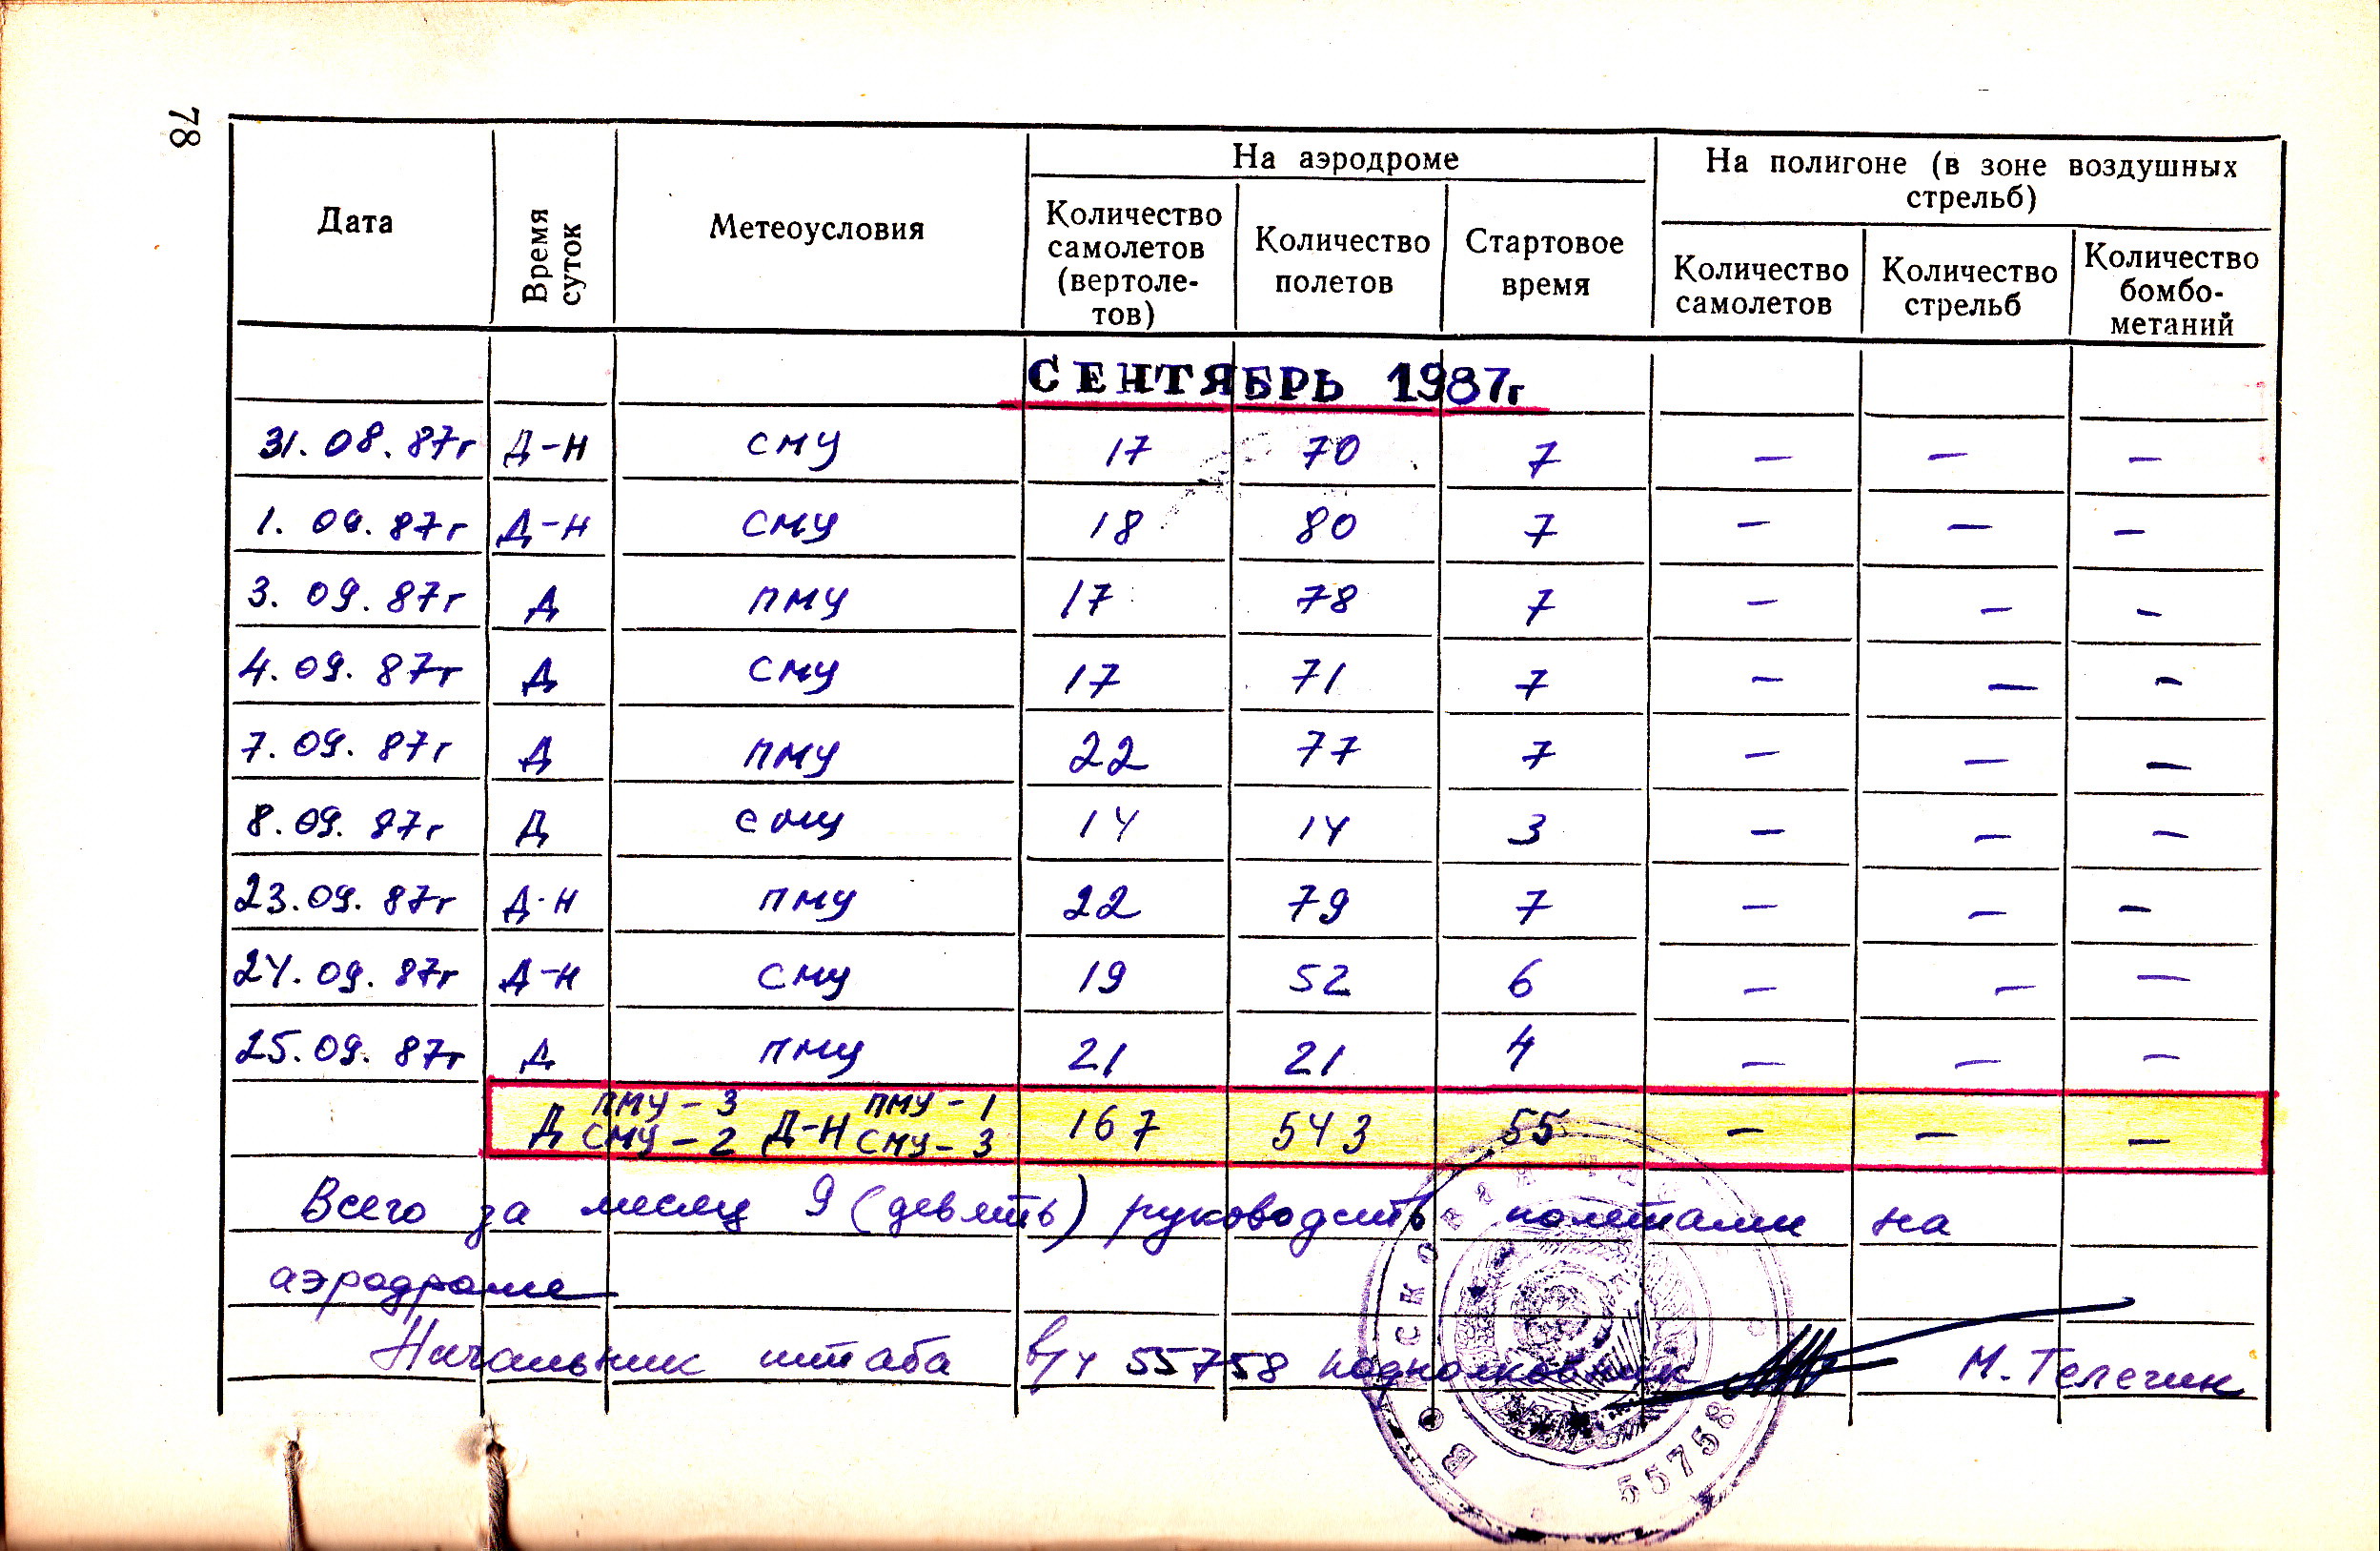 78
На аэродроме
На полигоне (в зоне воздушных
стрельб)
Дата
Время
суток
Метеоусловия
Количество
самолетов
(вертоле-
тов)
Количество
полетов
Стартовое
время
Количество
самолетов
Количество
стрельб
Количество
бомбо-
метаний
СЕНТЯБРЬ 1987г
31.08.87г Д-Н СМУ 17 70 7 — — —
1.09.87г Д-Н СМУ 18 80 7 — — —
3.09.87г Д ПМУ 17 78 7 — — —
4.09.87г Д СМУ 17 71 7 — — —
7.09.87г Д ПМУ 22 77 7 — — —
8.09.87г Д СМУ 14 14 3 — — —
23.09.87г Д-Н ПМУ 22 79 7 — — —
24.09.87г Д-Н СМУ 19 52 6 — — —
25.09.87г Д ПМУ 21 21 4 — — —
Д ПМУ-3 СМУ-2 Д-Н ПМУ-1 СМУ-3 167 543 55 — — —
Всего за месяц 9 (девять) руководств полетами на
аэродроме
Начальник штаба в/ч 55758 подполковник М. Телегин
55758